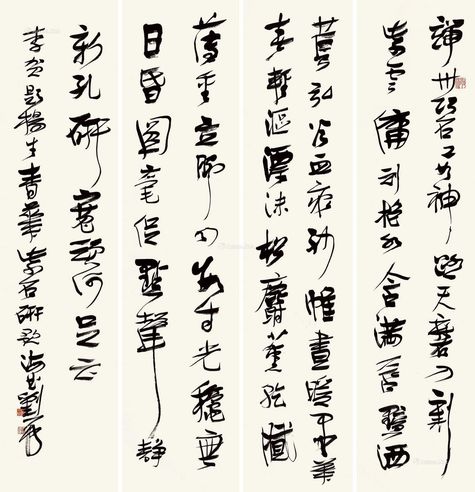 端州石工巧如神踏天磨刀割
紫雲傭刓抱水含滿唇暗洒
萇弘冷血痕紗帷晝暖墨花
春輕漚漂沫松麝薰乾膩
薄重立腳勻數寸光秋無
日昏圓毫促點聲靜
新孔研寬頑何足云
李賀題楊生青花紫石研歌海上劉